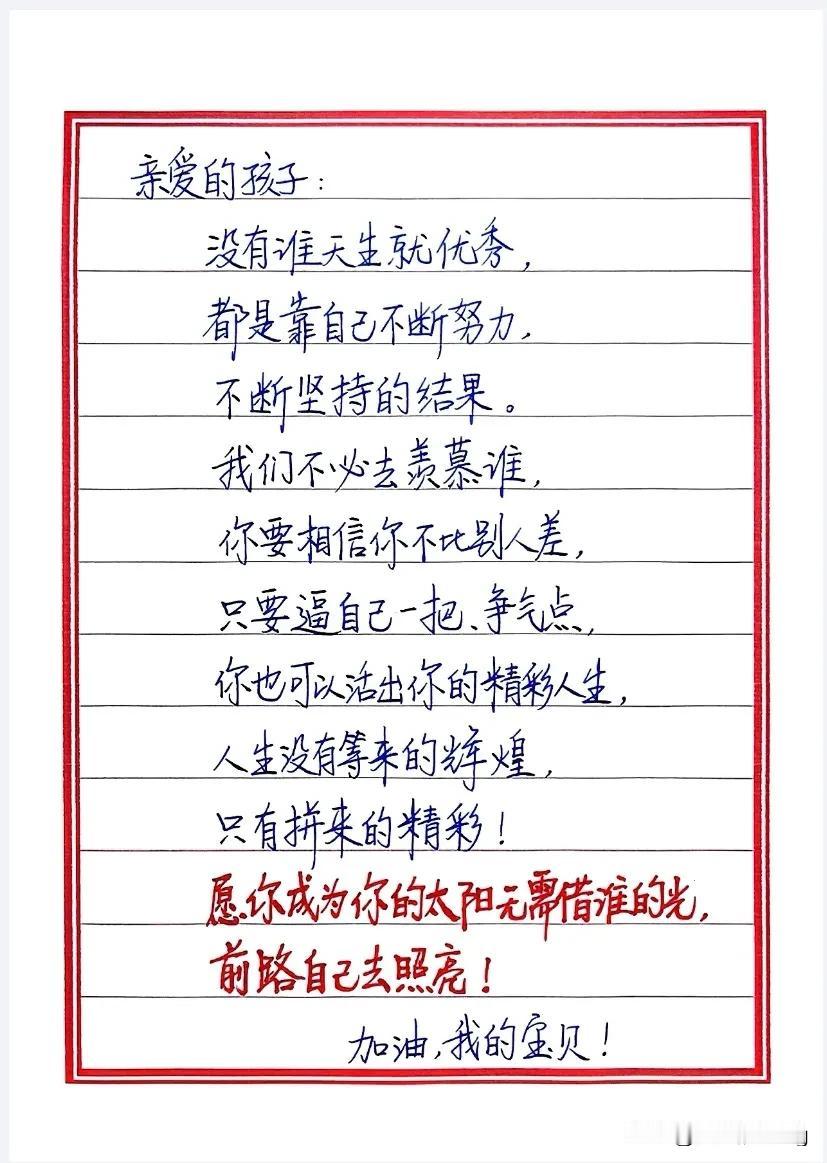 亲爱的孩子：
没有谁天生就优秀，
都是靠自己不断努力，
不断坚持的结果。
我们不必去羡慕谁，
你要相信你不比别人差，
只要逼自己一把、争气点，
你也可以活出你的精彩人生，
人生没有等来的辉煌，
只有拼来的精彩！
愿你成为你的太阳无需借谁的光，
前路自己去照亮！
加油，我的宝贝！